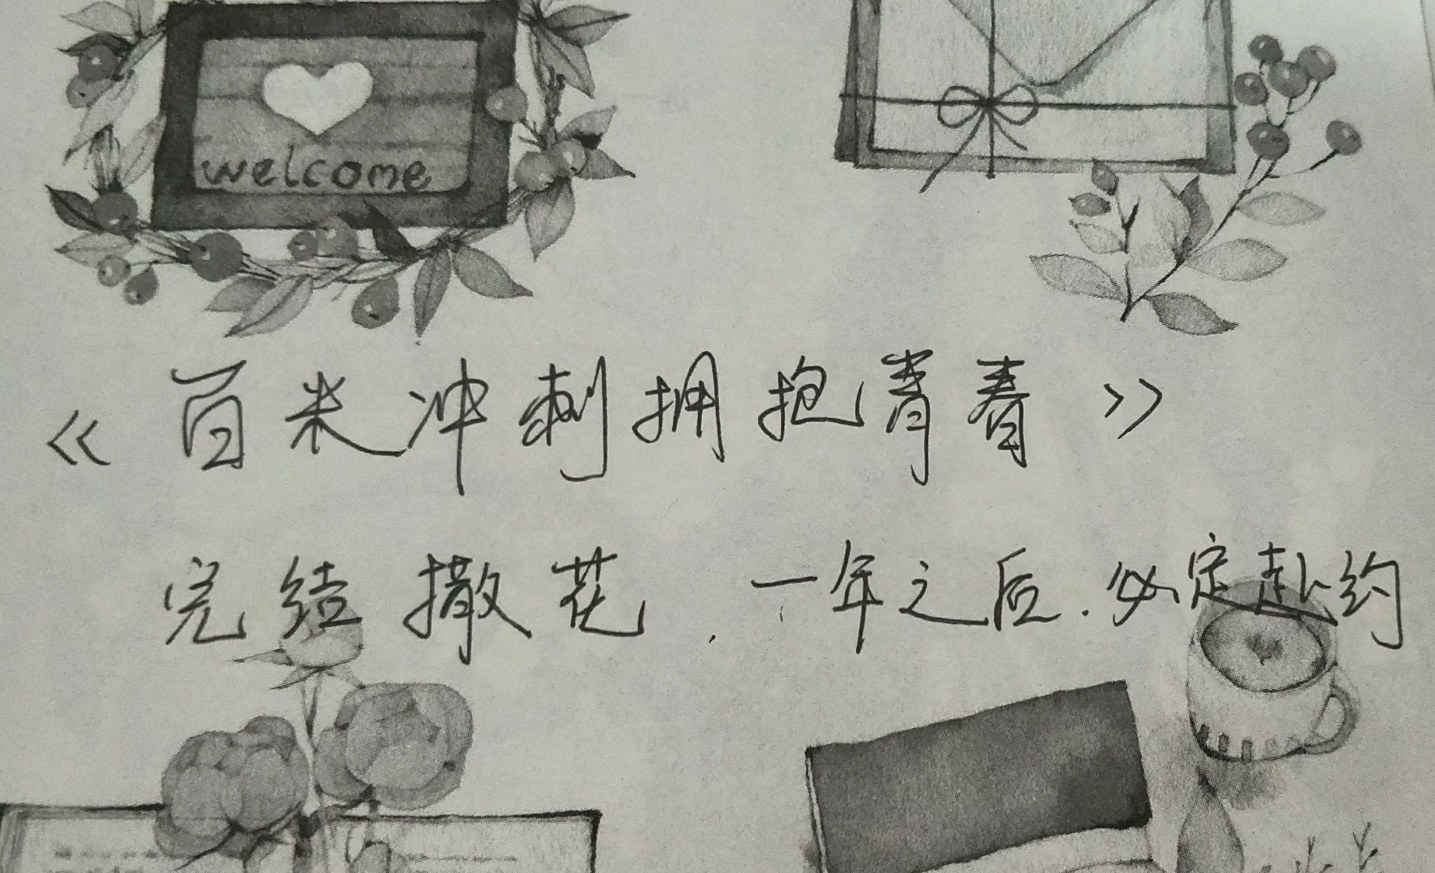 welcome
《百米冲刺拥抱青春》
完结撒花，一年之后.必定赴约